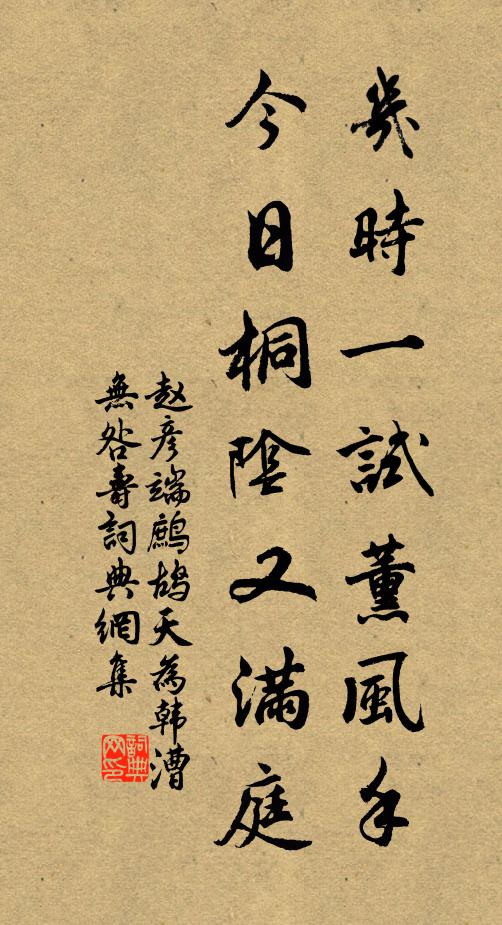 幾時一試薰風手
今日桐陰又滿庭
赵彦端鷓鴣天為韩漕
無咎壽詞典網集
詞典
网印